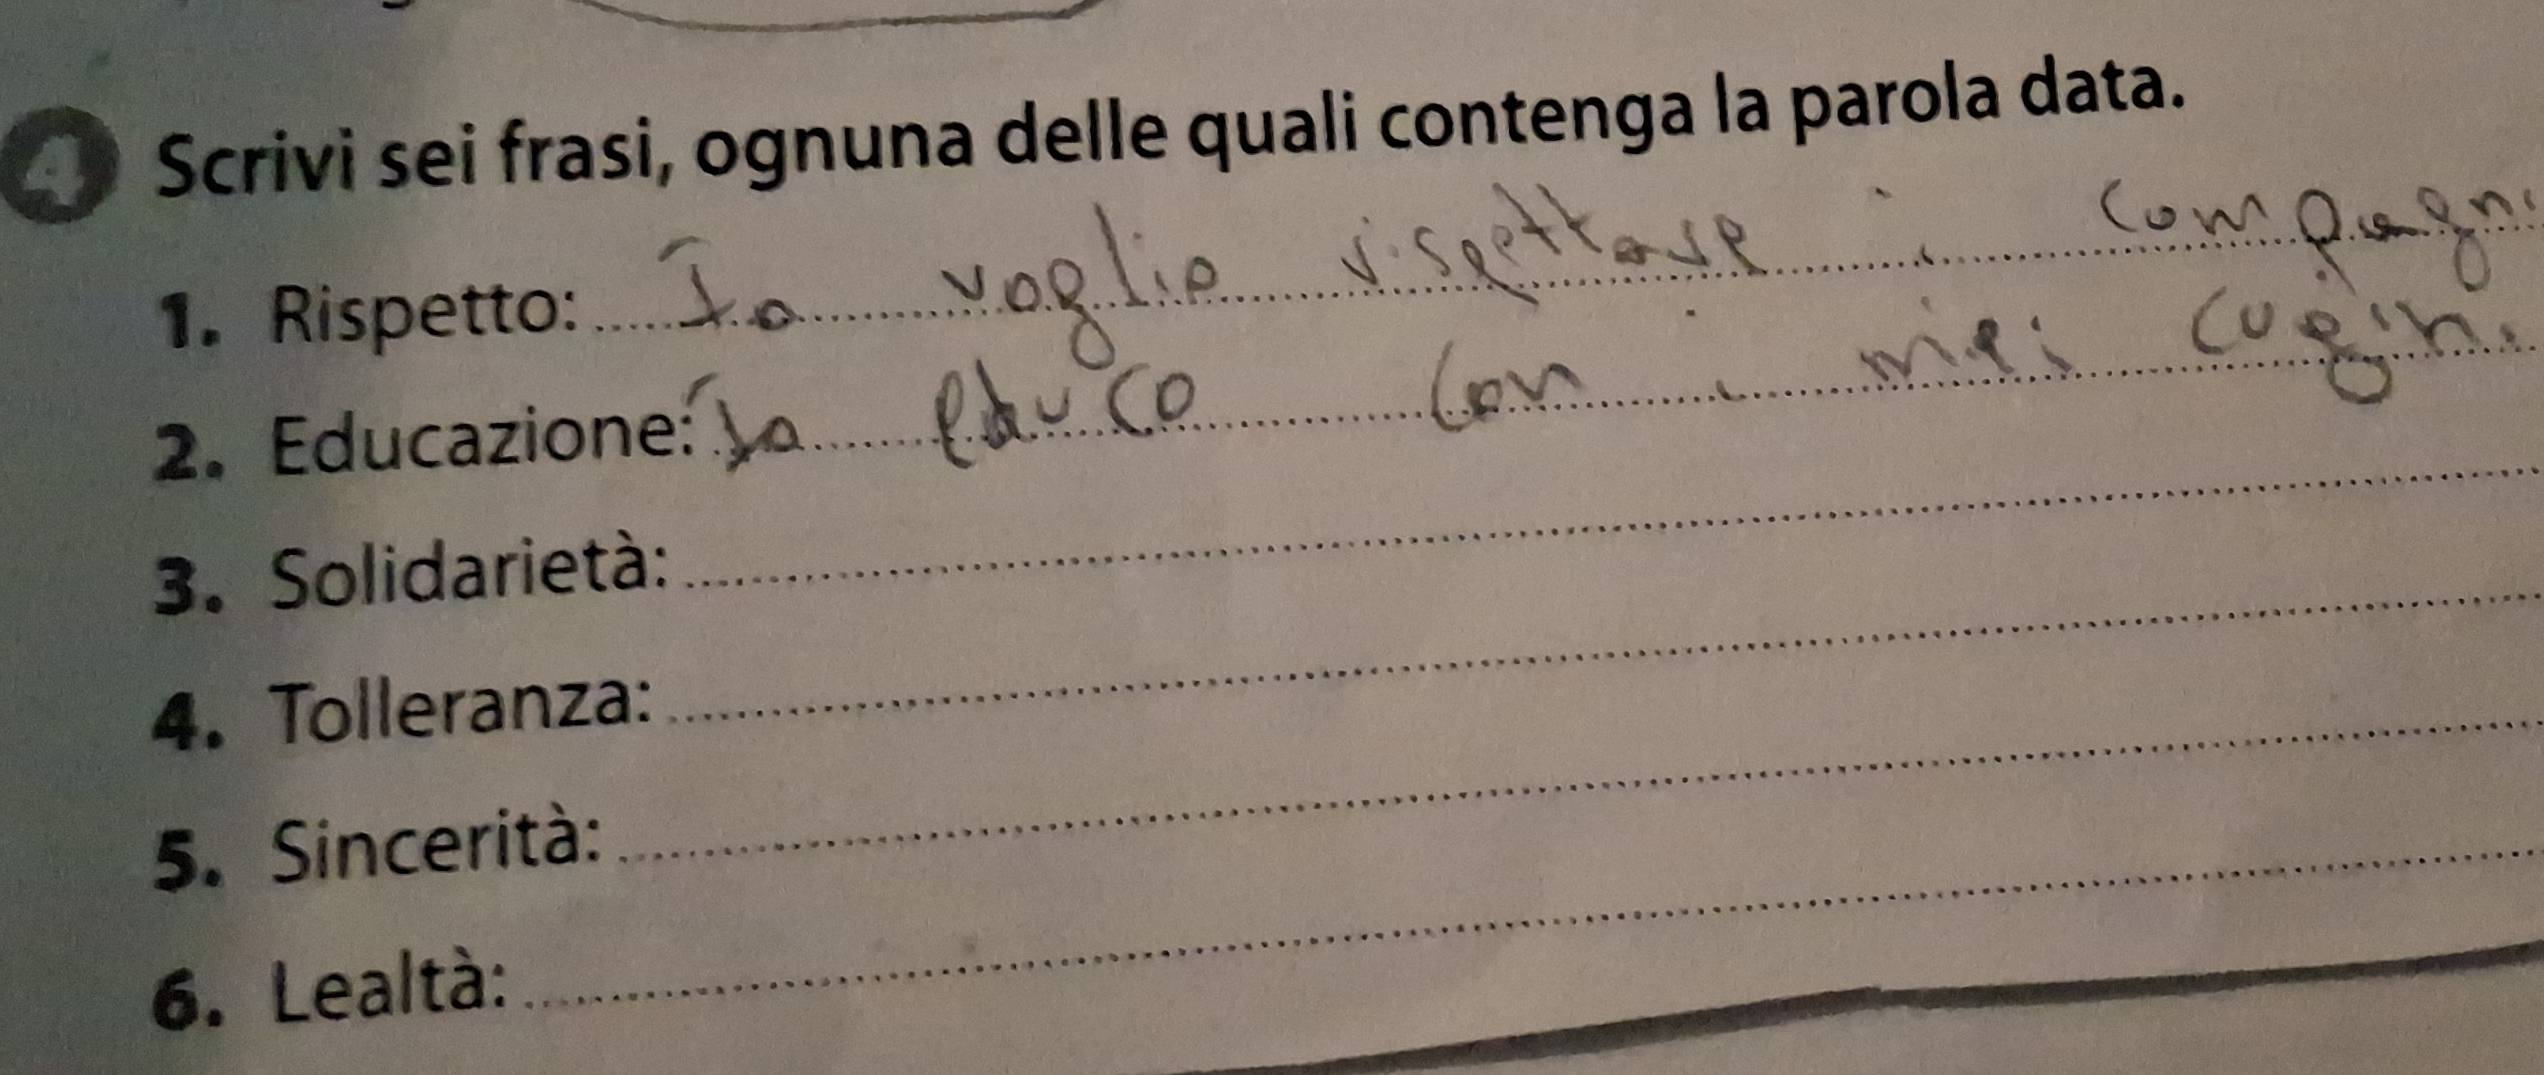 4 Scrivi sei frasi, ognuna delle quali contenga la parola data.
1. Rispetto: Io voglio rispettare i compagni
2. Educazione: Io educo con i miei cugini
3. Solidarietà:
4. Tolleranza:
5. Sincerità:
6. Lealtà: